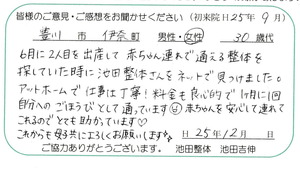 皆様のご意見・ご感想をお聞かせください（初来院H25年9月）
豊川市 伊奈町 男性・女性 30歳代
6月に2人目を出産して赤ちゃん連れで通える整体を
探していた時に池田整体さんをネットで見つけました。
アットホームで仕事は丁寧!料金も良心的で1ヶ月に1回
自分へのごほうびとして通っています 赤ちゃんを安心して連れて
これるのでとても助かっています♡
これからも母子共によろしくお願いします 25年12月 日
ご協力ありがとうございます。 池田整体 池田吉伸